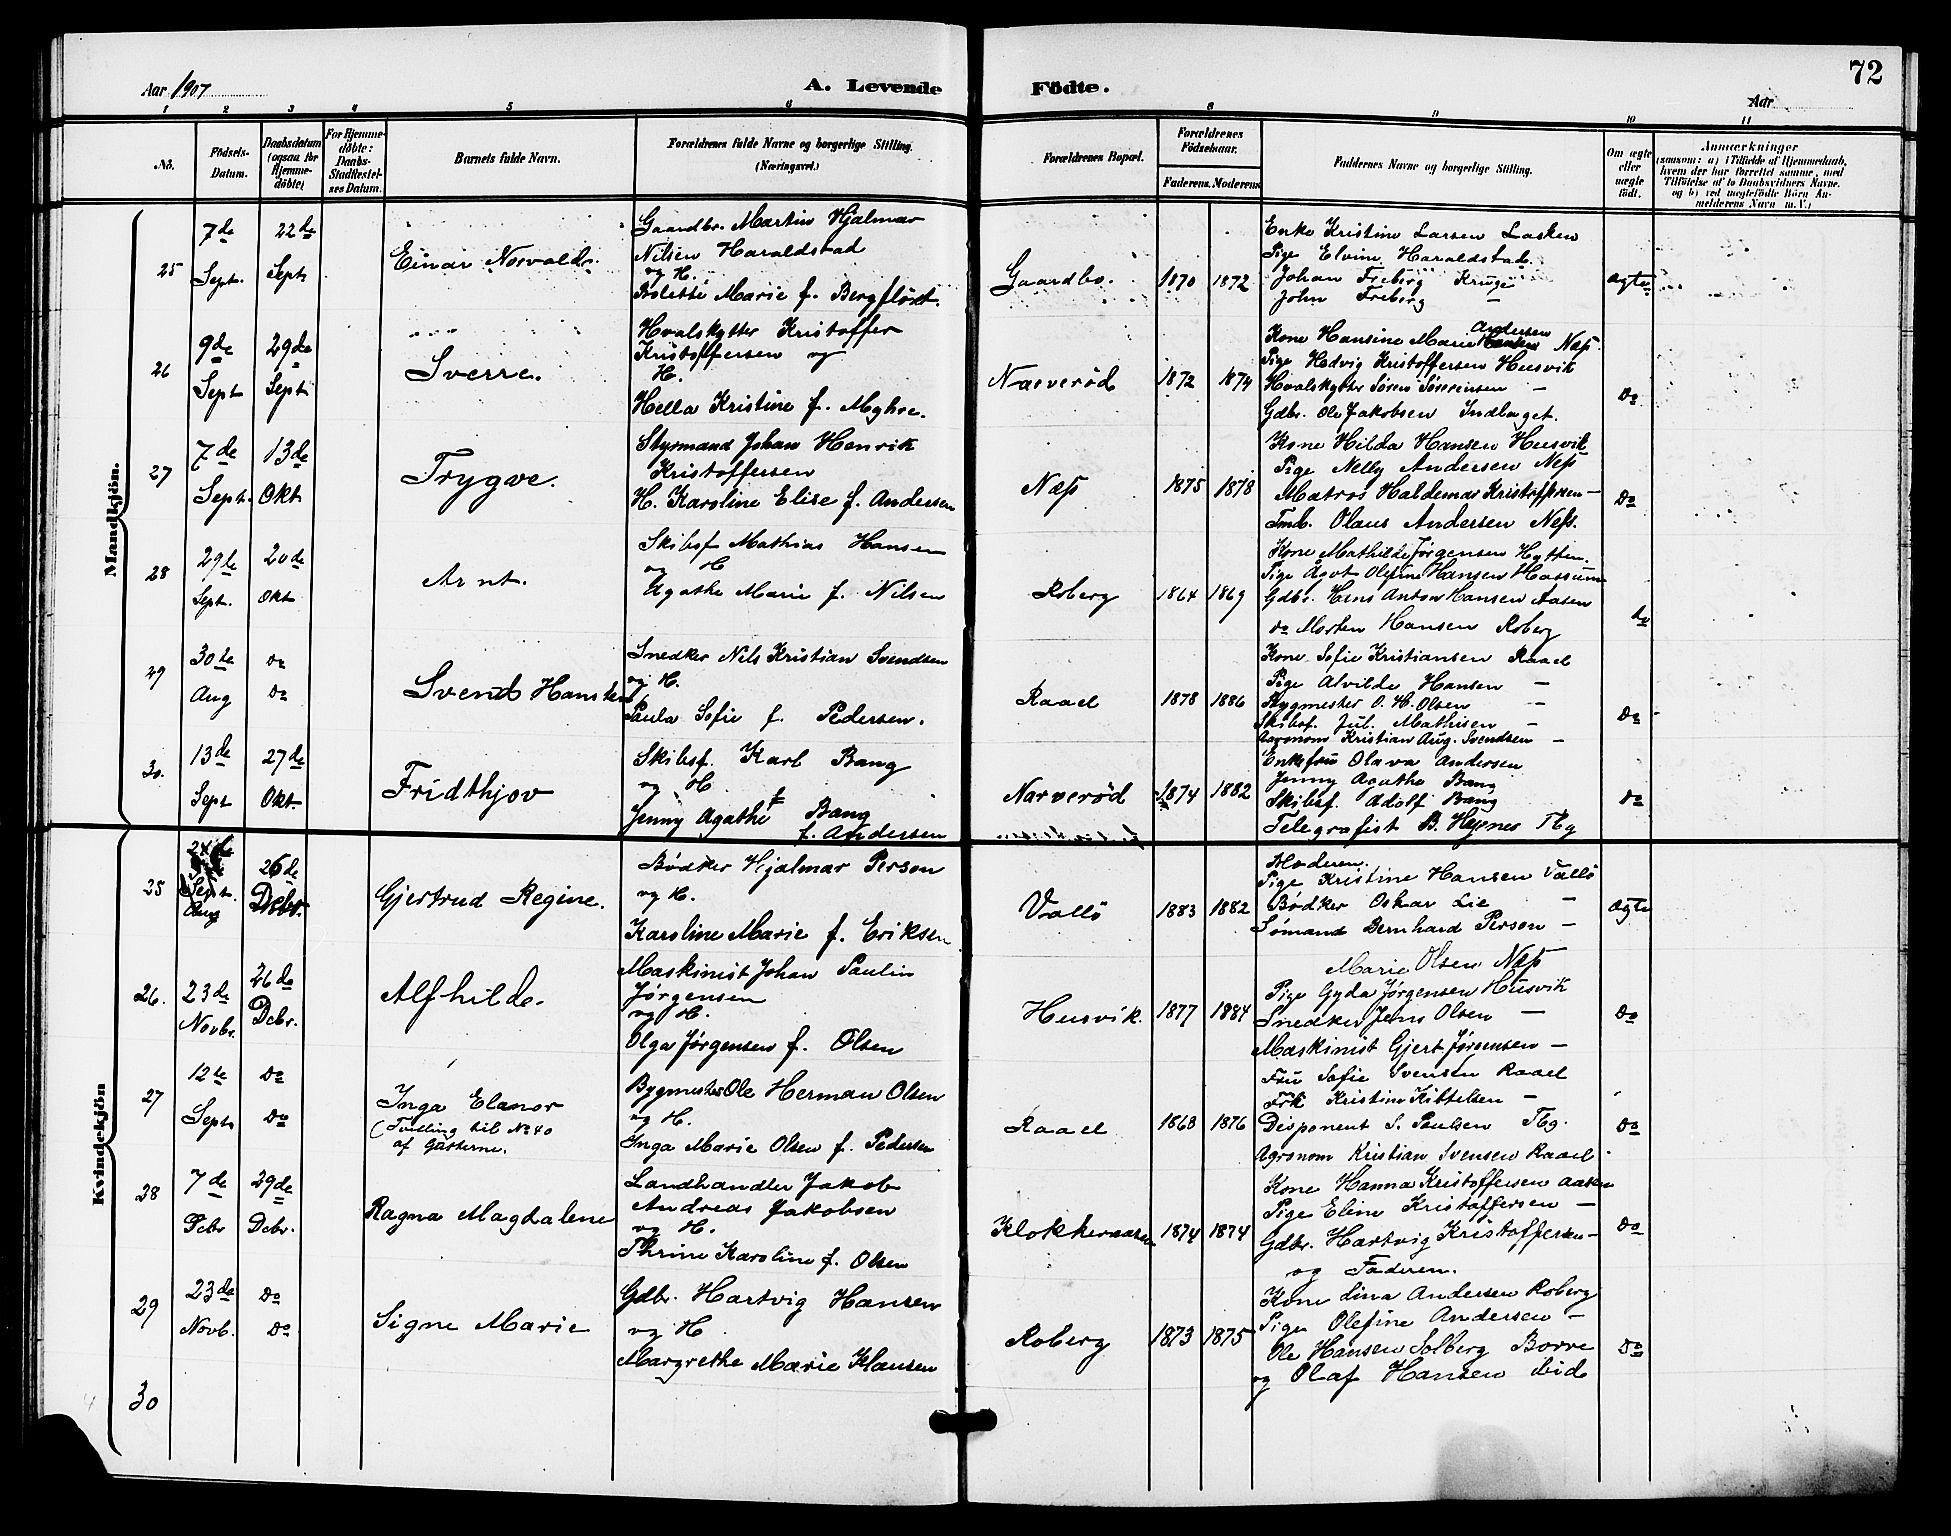 72
Aar 1907
A. Levende Födte.
Aar
1 2 3 4 5 6 8 9 10 11
No.
Födsels-Datum.
Daabsdatum (ogsaa for Hjemme-döbte)
For Hjemme-döbte: Daabs-Stadfæstel-ses Datum.
Barnets fulde Navn.
Forældrenes fulde Navne og borgerlige Stilling. (Næringsvei.)
Forældrenes Bopæl.
Forældrenes Födselsaar.
Faderens. Moderens.
Faddernes Navne og borgerlige Stilling.
Om ægte eller uægte födt.
Anmærkninger
(saasom: a) i Tilfælde af Hjemmedaab,
hvem der har forrettet samme, med
Tilföielse af to Daabsvidners Navne.
og b) ved uægtefödte Börn An-
melderens Navn m. V.)
Mandkjön.
25
7de Sept.
22de Sept
Einar Norvald
Gaardbr. Martin Hjalmar
Nilsen Haraldstad
og H.
Bolette Marie f. Bergflödt.
Gaardbo.
1870 1872
Enke Kristine Larsen Lasken
Pige Elvine Haraldstad
Johan Freberg Kruge
John Freberg —
Ægte
26
9de Sept
29de Sept
Sverre.
Hvalskytter Kristoffer
Kristoffersen og
H.
Hella Kristine f. Myhre.
Narverød
1872 1874
Kone Hansine Marie Andersen Næs.
Pige Hedvig Kristoffersen Husvik
Hvalskytter Søren Sørensen —
Gdbr. Ole Jakobsen Indlaget.
Do
27
7de Sept.
13de Okt
Trygve.
Styrmand Johan Henrik
Kristoffersen
H. Karoline Elise f. Andersen
Næs
1875 1878
Kone Hilda Hansen Husvik
Pige Nelly Andersen Næs
Matros Haldemar Kristoffersen —
Tmb. Olaus Andersen Næs.
Do
28
29te Sept.
20de Okt
Arnt.
Skibsf Mathias Hansen
og H
Agathe Marie f. Nilsen
Roberg
1864 1869
Kone Mathilde Jørgensen Hytten.
Pige Ågot Olefine Hansen Hassum
Gdbr. Hans Anton Hansen Aasen
do Morten Hansen Roberg
do
29
30te Aug
Do Do
Svend Hansteen
Snedker Nils Kristian Svendsen
og H.
Paula Sofie f. Pedersen.
Raael
1878 1886
Kone Sofie Kristiansen Raael
Pige Alvilde Hansen —
Bygmester O. H. Olsen —
Skibsf. Jul. Mathisen —
Agronom Kristian Aug. Svendsen —
Do
30.
13de Sept
27de Okt
Fridthjov
Skibsf. Karl Bang
og H
Jenny Agathe Bang
f. Andersen
Narverød
1874 1882
Enkefru Olava Andersen
Jenny Agathe Bang
Skibsf. Adolf Bang
Telegrafist B. Højnes Tbg
Do
Kvindekjön
25
24de Sept. Aug
26de Debr.
Gjertrud Regine.
Bødker Hjalmar Person
og H.
Karoline Marie f. Eriksen
Vallö
1883 1882
Moderen.
Pige Kristine Hansen Vallö
Bødker Oskar Lie —
Sømand Bernhard Person —
Ægte
26.
23de Novbr.
26de Debr.
Alfhilde.
Maskinist Johan Paulin
Jørgensen
og H.
Olga Jørgensen f. Olsen
Husvik.
1877 1884
Marie Olsen Næs
Pige Gyda Jørgensen Husvik
Snedker Jens Olsen —
Maskinist Gjert Jørgensen —
Do
27
12te Sept
Do Do
Inga Elanor
(Tvilling til No 40
af Gutterne.
Bygmester Ole Herman Olsen
og H.
Inga Marie Olsen f. Pedersen
Raael
1868 1876
Fru Sofie Svensen Raael
Frk Kristine Kittelsen —
Disponent S. Paulsen Tbg.
Agronom Kristian Svensen Raael
Do
28
7de Debr
29de Debr.
Ragna Magdalene
Landhandler Jakob
Andreas Jakobsen
og H.
Thrine Karoline f. Olsen
Klokkeraasen
1874 1874
Kone Hanna Kristoffersen Aasen
Pige Eline Kristoffersen —
Gdbr. Hartvig Kristoffersen —
og Faderen.
Do
29
23de Novb.
Do Do
Signe Marie
Gdbr. Hartvig Hansen
og H
Margrethe Marie Klausen
Roberg
1873 1875
Kone Lina Andersen Roberg
Pige Olefine Andersen —
Ole Hansen Solberg Borre
og Olaf Hansen ibid
Do
30